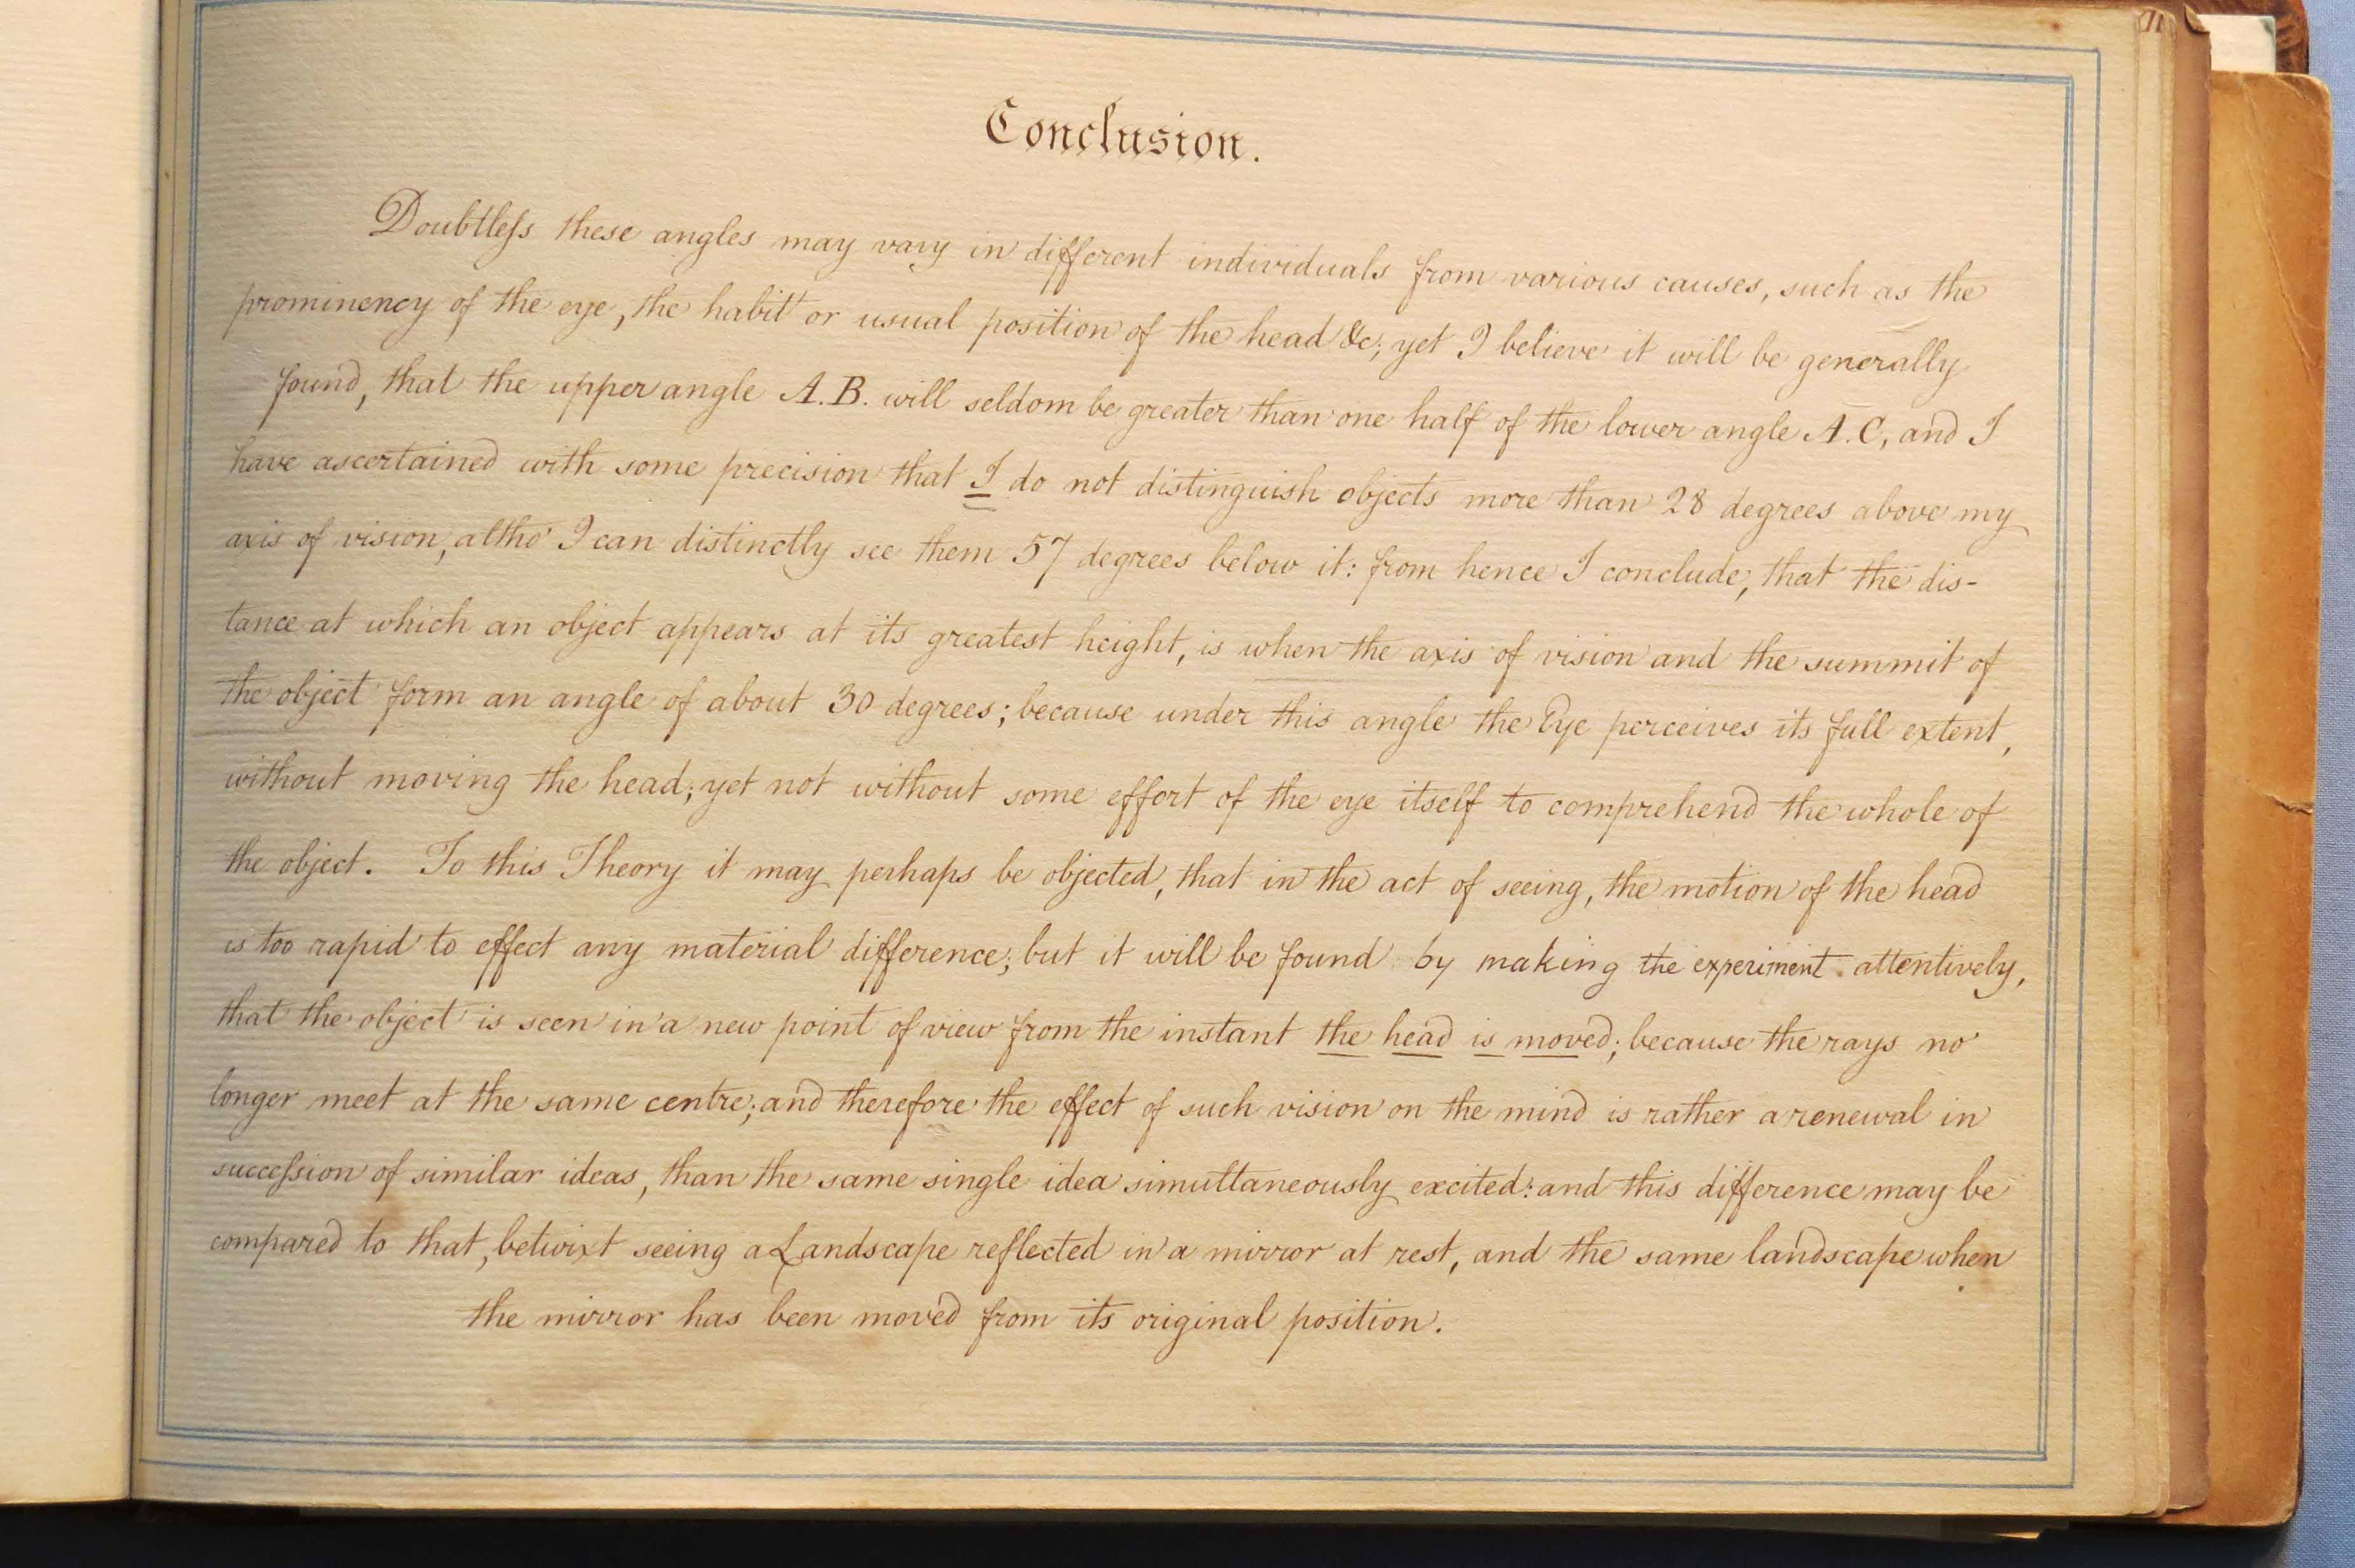 Conclusion.
Doubtleſs these angles may vary in different individuals from various causes, such as the
prominency of the eye, the habit or usual position of the head &c; yet I believe it will be generally
found, that the upper angle A.B. will seldom be greater than one half of the lower angle A.C, and I
have ascertained with some precision that I do not distinguish objects more than 28 degrees above my
axis of vision, altho' I can distinctly see them 57 degrees below it: from hence I conclude, that the dis-
tance at which an object appears at its greatest height, is when the axis of vision and the summit of
the object form an angle of about 30 degrees; because under this angle the Eye perceives its full extent,
without moving the head; yet not without some effort of the eye itself to comprehend the whole of
the object. To this Theory it may perhaps be objected, that in the act of seeing, the motion of the head
is too rapid to effect any material difference; but it will be found by making the experiment attentively,
that the object is seen in a new point of view from the instant the head is moved; because the rays no
longer meet at the same centre; and therefore the effect of such vision on the mind is rather a renewal in
succeſsion of similar ideas, than the same single idea simultaneously excited: and this difference may be
compared to that, betwixt seeing a Landscape reflected in a mirror at rest, and the same landscape when
the mirror has been moved from its original position.